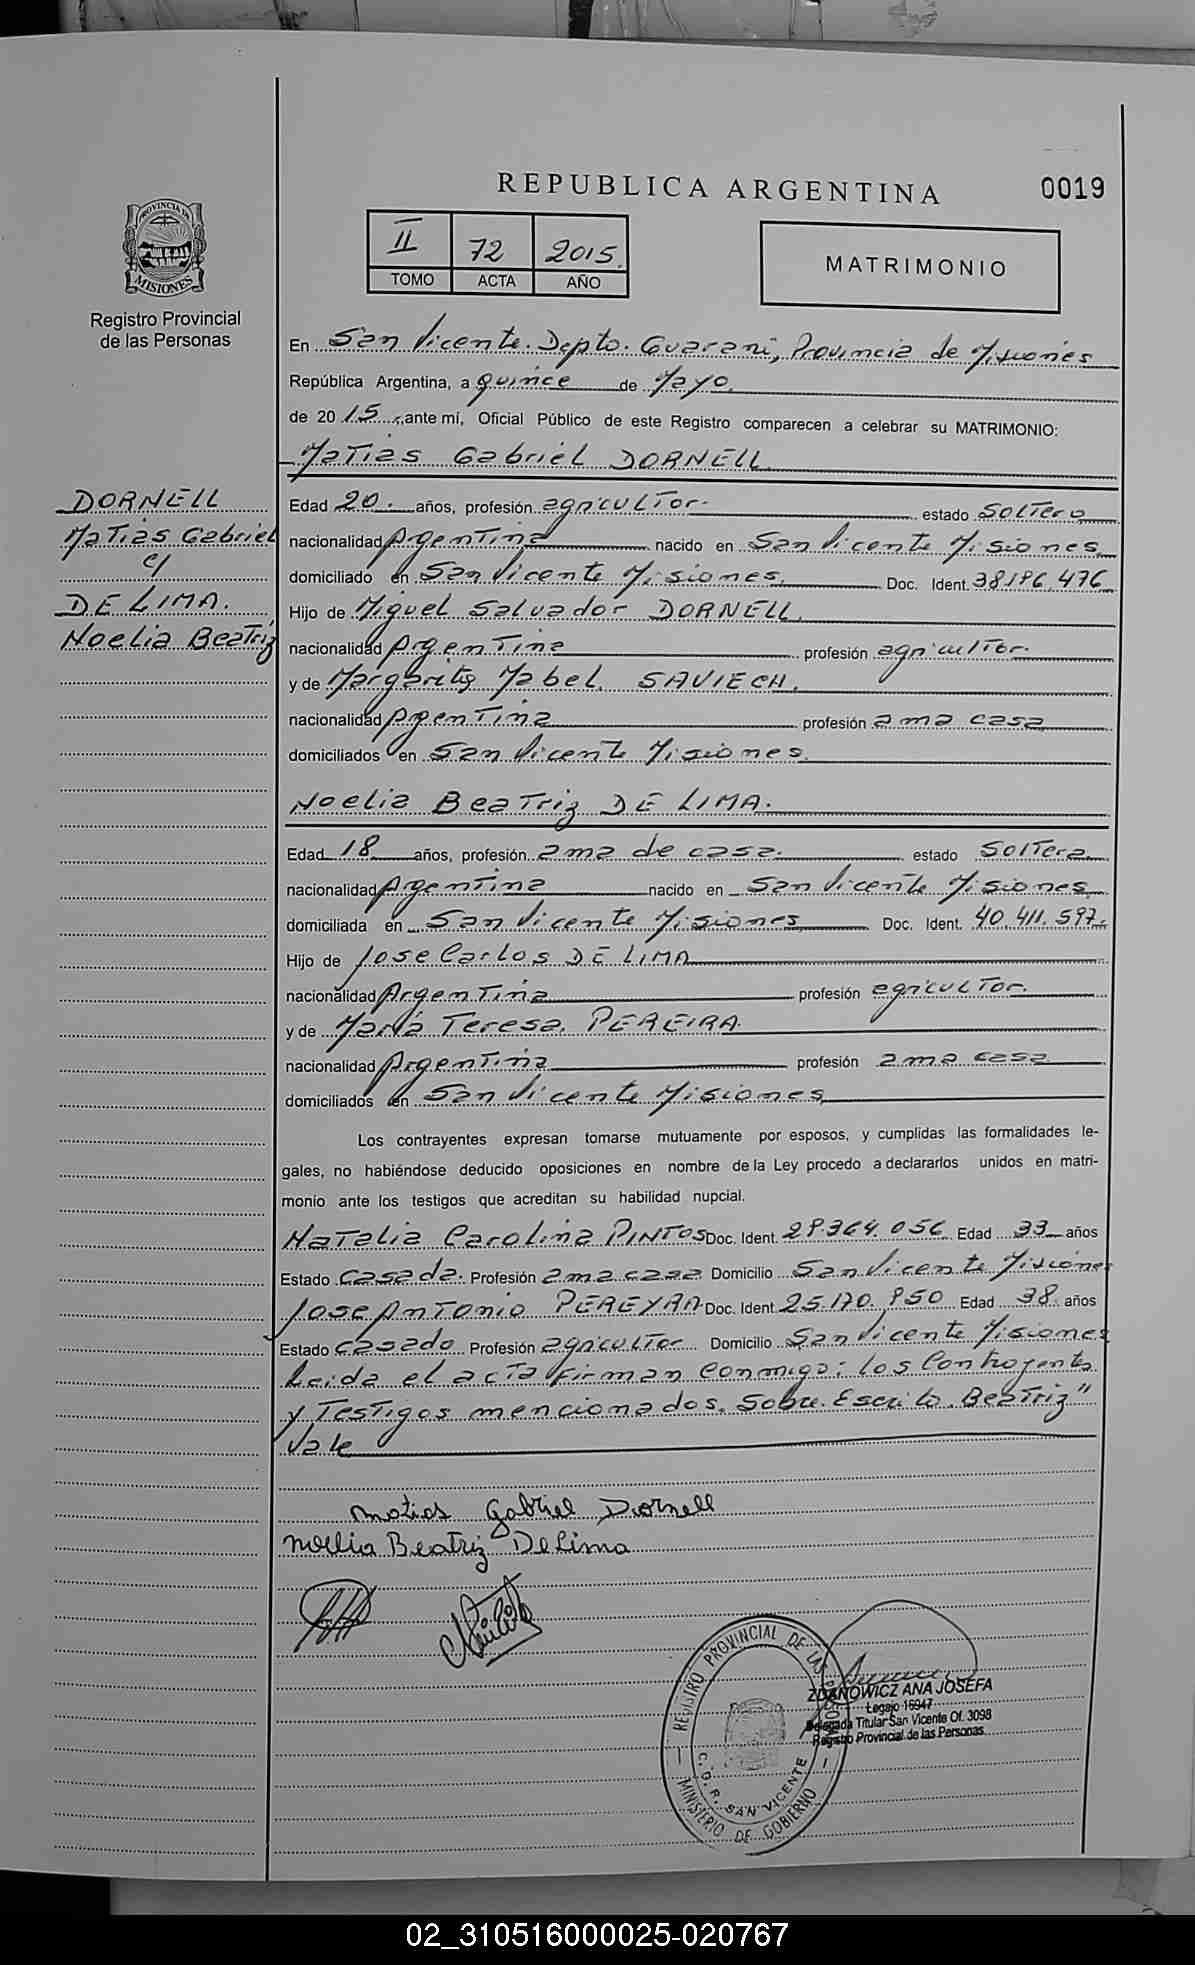 REPUBLICA ARGENTINA
0019
PROVINCIA DE
MISIONES
Registro Provincial
de las Personas
II 72 2015.
TOMO ACTA AÑO
MATRIMONIO
En San Vicente. Depto. Guaraní, Provincia de Misiones
República Argentina, a quince de Mayo.
de 2015., ante mí, Oficial Público de este Registro comparecen a celebrar su MATRIMONIO:
Matias Gabriel DORNELL
DORNELL
Matias Gabriel
c/
DE LIMA.
Noelia Beatriz
Edad 20. años, profesión agricultor. estado soltero
nacionalidad Argentina nacido en San Vicente Misiones
domiciliado en San Vicente Misiones. Doc. Ident. 38.196.476
Hijo de Miguel Salvador DORNELL
nacionalidad Argentina profesión agricultor.
y de Margarita Mabel. SAVIECH.
nacionalidad Argentina profesión ama casa
domiciliados en San Vicente Misiones.
Noelia Beatriz DE LIMA.
Edad 18 años, profesión ama de casa. estado soltera
nacionalidad Argentina nacido en San Vicente Misiones
domiciliada en San Vicente Misiones Doc. Ident. 40.411.597.
Hijo de Jose Carlos DE LIMA
nacionalidad Argentina profesión agricultor.
y de María Teresa. PEREIRA.
nacionalidad Argentina profesión ama casa
domiciliados en San Vicente Misiones
Los contrayentes expresan tomarse mutuamente por esposos, y cumplidas las formalidades le-
gales, no habiéndose deducido oposiciones en nombre de la Ley procedo a declararlos unidos en matri-
monio ante los testigos que acreditan su habilidad nupcial.
Natalia Carolina PINTOS Doc. Ident. 29.364.056 Edad 33 años
Estado casada. Profesión ama casa Domicilio San Vicente Misiones
Jose Antonio PEREYRA Doc. Ident. 25.170.950 Edad 38 años
Estado casado Profesión agricultor Domicilio San Vicente Misiones
Leida el acta firman conmigo: los Contrayentes
y Testigos mencionados. Sobre. Escrito. Beatriz"
Vale
Matias Gabriel Dornell
Noelia Beatriz De Lima
REGISTRO PROVINCIAL DE LAS PERSONAS
C.D.R. SAN VICENTE
MINISTERIO DE GOBIERNO
ZDANOWICZ ANA JOSEFA
Legajo 16947
Delegada Titular San Vicente Of. 3098
Registro Provincial de las Personas
02_310516000025-020767